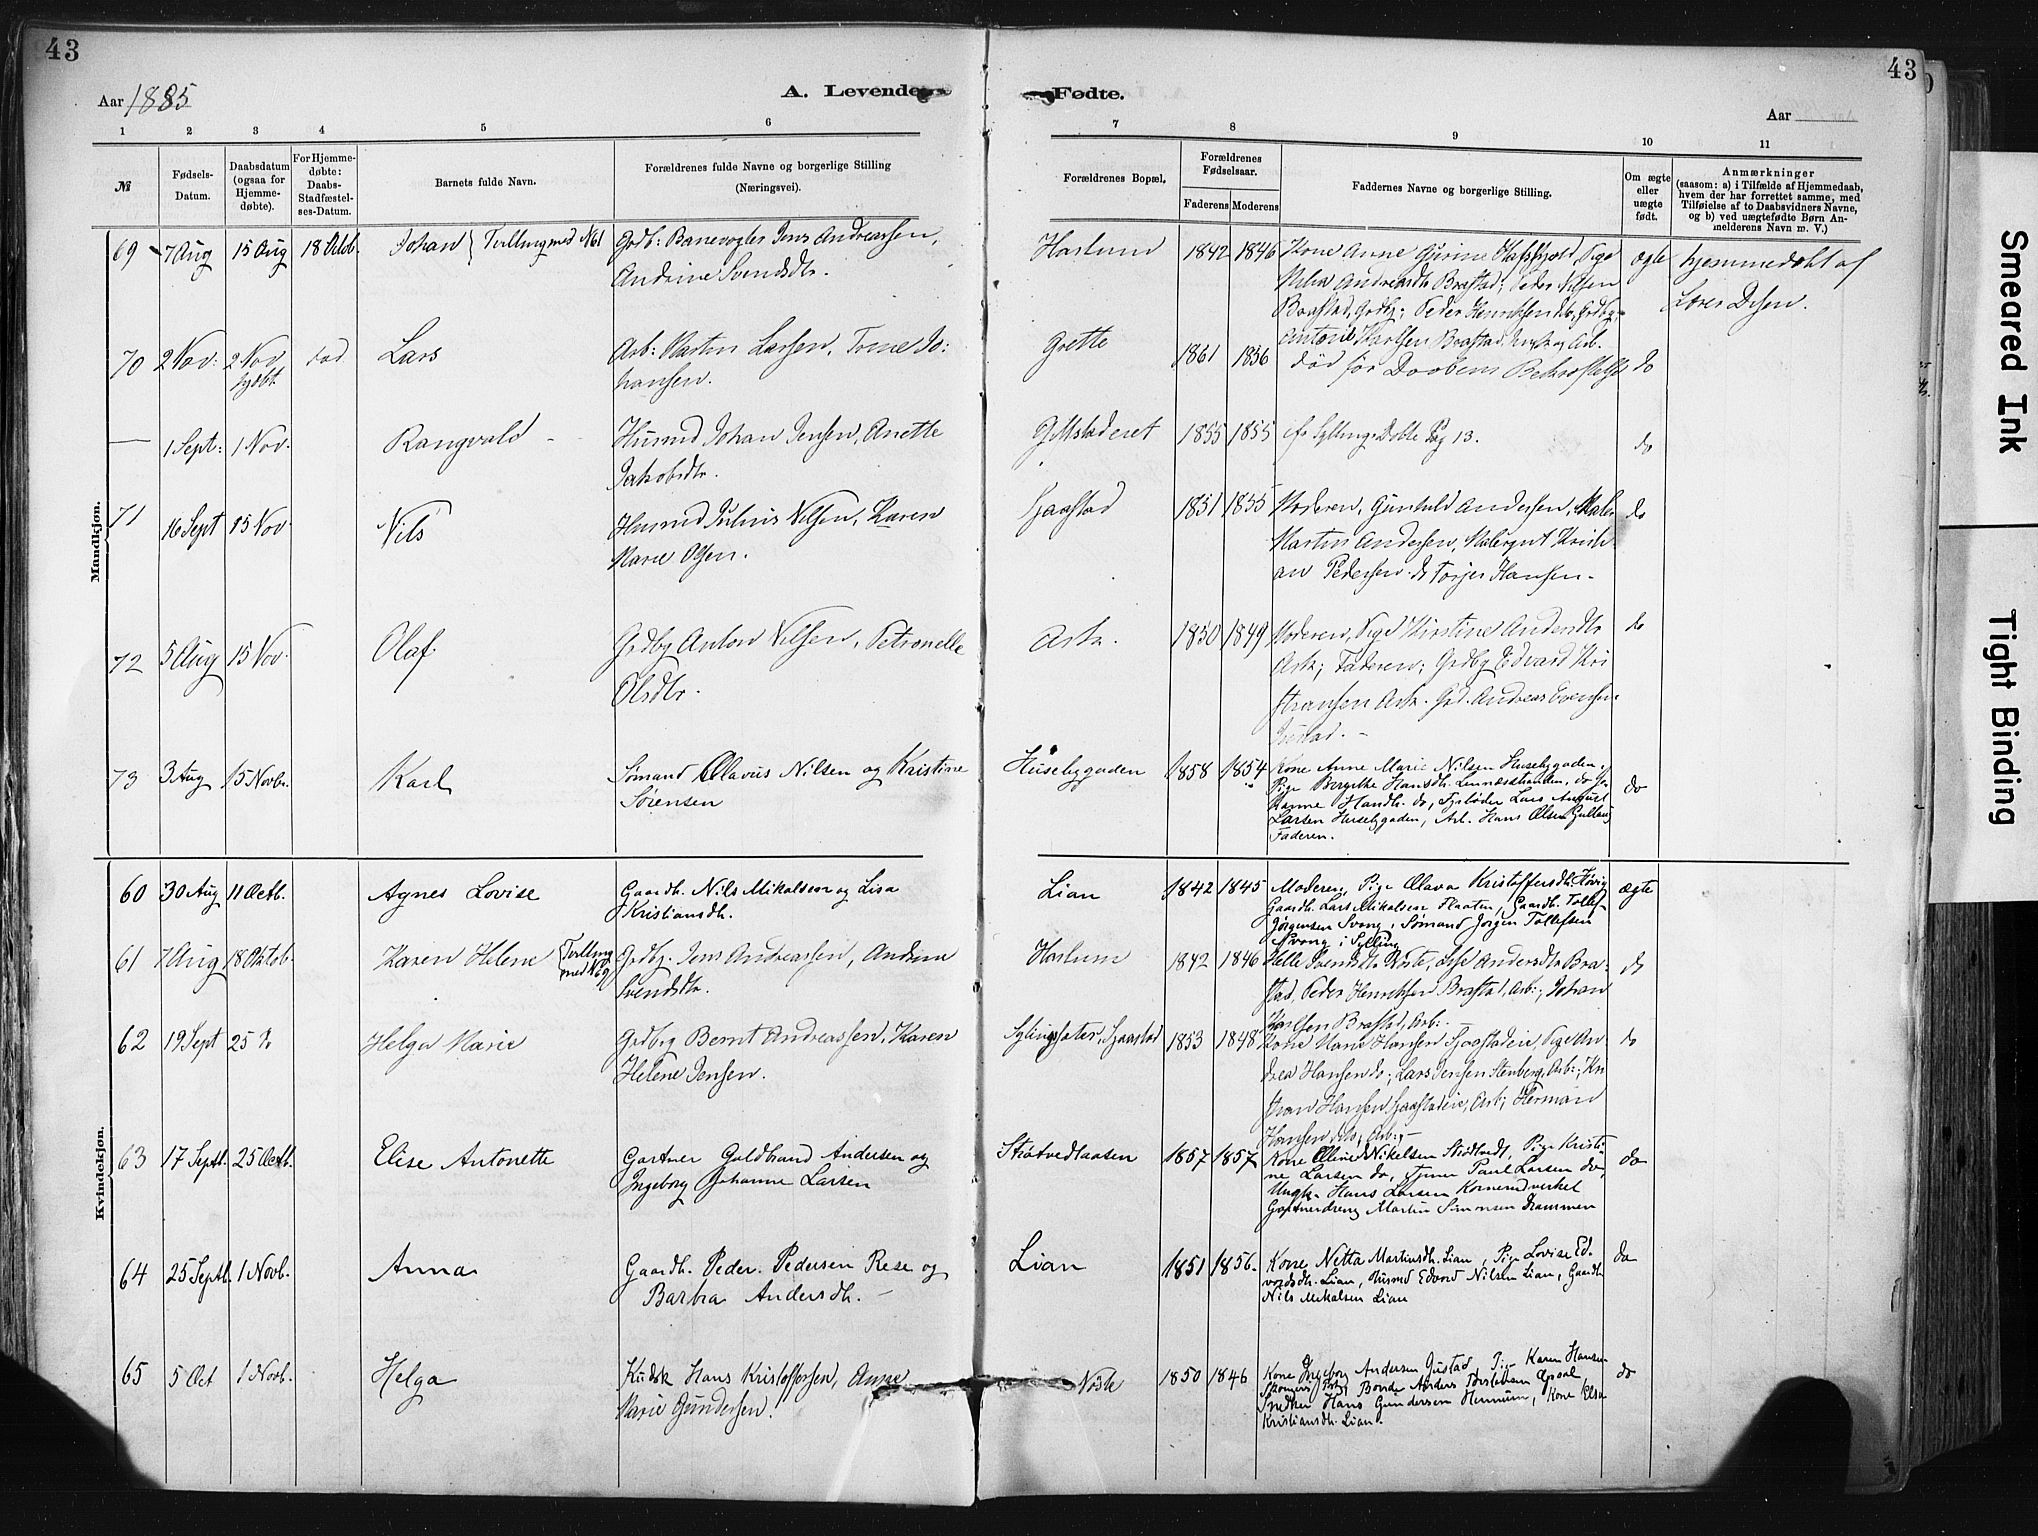 43
Aar 1885
A. Levende
1 2 3 4 5 6
№
Fødsels-
Datum.
Daabsdatum
(ogsaa for
Hjemme-
døbte).
For Hjemme-
døbte:
Daabs-
Stadfæstel-
ses-Datum.
Barnets fulde Navn.
Forældrenes fulde Navne og borgerlige Stilling
(Næringsvei).
Mandkjøn.
69 7 Aug 15 Aug 18 Octb. Johan { Tvilling med No 61 Gdb: Banevogter Jens Andreassen,
Andrine Svendsdtr.
70 2 Nov: 2 Nov død Lars Arb: Martin Larsen, Trine Jo-
hjdbt hansen.
— 1 Sept: 1 Nov. Rangvald Husmd Johan Jensen, Anette
Jakobsdtr.
71 16 Sept 15 Nov Nils Husmd Julius Nilsen, Karen
Marie Olsen.
72 5 Aug 15 Nov. Olaf. Grdbg Anton Nilsen, Petronelle
Olsdtr.
73 3 Aug 15 Novbr. Karl Sømand Olavus Nilsen og Kristine
Sørensen
Kvindekjøn.
60 30 Aug 11 Octb. Agnes Lovise Gaardb. Nils Mikalsen og Lisa
Kristiansdtr.
61 7 Aug 18 Oktob. Karen Helene { Tvilling med No 69 Grdbg. Jens Andreassen, Andrine
Svendsdtr.
62 19 Sept 25 do Helga Marie Grdbrg Bernt Andreassen, Karen
Helene Jensen.
63 17 Septb. 25 Octb. Elise Antonette Gartner Guldbrand Andersen og
Ingeborg Johanne Larsen
64 25 Septb. 1 Novb. Anna Gaardb. Peder Pedersen Rese og
Barbra Andersdtr. —
65 5 Oct 1 Novb. Helga Kudsk Hans Kristoffersen, Anne
Marie Gundersen.
43
Fødte.
Aar
7 8 9 10 11
Forældrenes Bopæl,
Forældrenes
Fødselsaar.
Faderens Moderens
Faddernes Navne og borgerlige Stilling.
Om ægte
eller
uægte
født.
Anmærkninger
(saasom: a) i Tilfælde af Hjemmedaab,
hvem der har forrettet samme, med
Tilføielse af to Daabsvidners Navne,
og b) ved uægtefødte Børn An-
melderens Navn m. V.)
Haslum 1842 1846 Kone Anne Gurine Pige ægte hjemmedøbt af
Andreasdtr Brastad; Peder Nilsen Lærer
Braastad, Grdbg; Peder Henriksen do, Grdbg;
Karlsen Brastad Arb.
Grette 1861 1856 død før Daabens Bekræftelse do
1855 1855 cfr Sylling Døbte Pag 13. do
Gjaastad 1851 1855 Moderen, Gunhild Andersen, do
Martin Andersen, Kristi-
an Pedersen do Torjer Hansen.
Ask 1850 1849 Moderen, Pige Kirstine Andersdtr do
Ask; Faderen; Grdbg Edvard Kri
stiansen Ask. Grd. Andreas Evensen
Gustad. —
Husebygaden 1858 1854 Kone Anne Marie Nilsen Husebygaden, do
Pige Bergitte Hansdtr. Lennæsstranden, do Jo-
hanne Hansdtr. do, Lars August
Larsen Husebygaden, Arb. Hans Olsen
Faderen.
Lian 1842 1845 Moderen, Pige Olava Kristoffersdtr. ægte
Gaardb. Lars Mikalsen Flaaten, Gaardb. Tollef
Jørgensen Svang, Sømand Jørgen Tollefsen
Svang i Sylling
Haslum 1842 1846 Helle Svendsdtr Andersdtr Bra- do
stad, Peder Henriksen Brastad, Arb:, Johan
Karlsen Brastad, Arb: —
Gjaastad 1853 1848 Kone Hansen Gjaastadeie, Pige An do
drea Hansen do; Lars Jensen Stenberg, Arb:, Kri
stian Hansen Gjaastadeie, Arb; Herman
Hansen do, Arb: —
Støtvedtaasen 1857 1857 Kone Nikelsen Pige Kristi- do
ne Larsen do, Paul Larsen do,
Ungk. Hans Larsen
Gartnerdreng Martin Simensen Drammen
Lian 1851 1856. Kone Netta Martinsdtr. Lian, Pige Lovise Ed- do
vardsdtr. Lian, Husmd Edvard Nilsen Lian, Gaardb.
Nils Mikalsen Lian
Nøste 1850 1846 Kone Ingeborg Andersen Gustad, Pige Karen Hansen do
Bonde Anders Torstensen Opsal
Snedker Hans Gundersen Hennum, Kone Elsa
Kristiansdtr. Lian.
Smeared Ink
Tight Binding